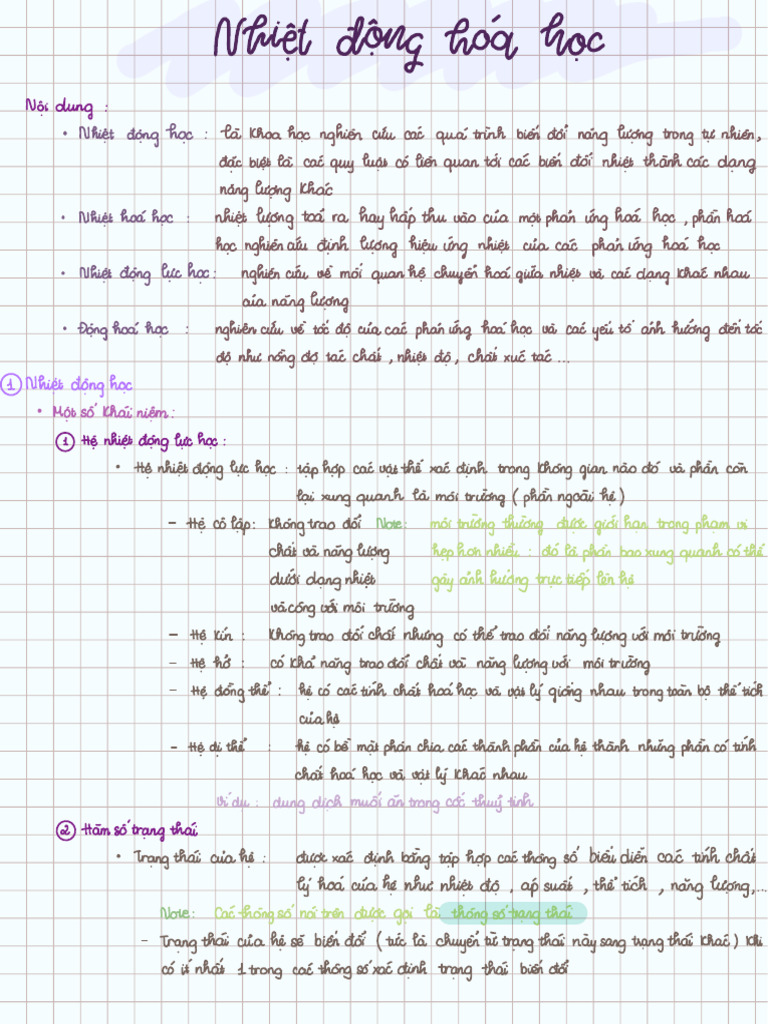 Nhiệt động hóa học
Nội dung :
• Nhiệt động học : là khoa học nghiên cứu các quá trình biến đổi năng lượng trong tự nhiên,
đặc biệt là các quy luật có liên quan tới các biến đổi nhiệt thành các dạng
năng lượng khác
• Nhiệt hoá học : nhiệt lượng toả ra hay hấp thu vào của một phản ứng hoá học , phần hoá
học nghiên cứu định lượng hiệu ứng nhiệt của các phản ứng hoá học
• Nhiệt động lực học : nghiên cứu về mối quan hệ chuyển hoá giữa nhiệt và các dạng khác nhau
của năng lượng
• Động hoá học : nghiên cứu về tốc độ của các phản ứng hoá học và các yếu tố ảnh hưởng đến tốc
độ như nồng độ tác chất , nhiệt độ , chất xúc tác ...
① Nhiệt động học
• Một số khái niệm :
① Hệ nhiệt động lực học :
• Hệ nhiệt động lực học : tập hợp các vật thể xác định trong không gian nào đó và phần còn
lại xung quanh là môi trường ( phần ngoài hệ )
- Hệ cô lập : không trao đổi Note : môi trường thường được giới hạn trong phạm vi
chất và năng lượng hẹp hơn nhiều : đó là phần bao xung quanh có thể
dưới dạng nhiệt gây ảnh hưởng trực tiếp lên hệ
và công với môi trường
- Hệ kín : không trao đổi chất nhưng có thể trao đổi năng lượng với môi trường
- Hệ hở : có khả năng trao đổi chất và năng lượng với môi trường
- Hệ đồng thể : hệ có các tính chất hoá học và vật lý giống nhau trong toàn bộ thể tích
của hệ
- Hệ dị thể : hệ có bề mặt phân chia các thành phần của hệ thành những phần có tính
chất hoá học và vật lý khác nhau
Ví dụ : dung dịch muối ăn trong cốc thuỷ tinh
② Hàm số trạng thái
• Trạng thái của hệ : được xác định bằng tập hợp các thông số biểu diễn các tính chất
lý hoá của hệ như nhiệt độ , áp suất , thể tích , năng lượng,...
Note : Các thông số nói trên được gọi là thông số trạng thái
- Trạng thái của hệ sẽ biến đổi ( tức là chuyển từ trạng thái này sang trạng thái khác ) khi
có ít nhất 1 trong các thông số xác định trạng thái biến đổi